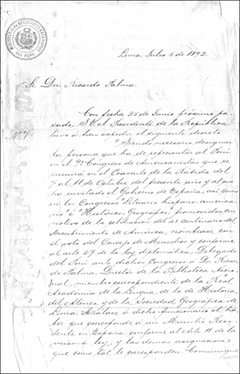 Lima, Julio 5 de 1892.
Sr. Don Ricardo Palma.
Con fecha 25 de Junio próximo
pasado, S. E. el Presidente de la República
ha expedido el siguiente decreto
"Siendo necesario designar
la persona que ha de representar al Perú
en el 9º Congreso de Americanistas que se
reunirá en el Convento de la Rábida del
7 al 11 de Octubre del presente año y al que
ha invitado el Gobierno de España, así como
en los Congresos Literario hispano-americano
é Histórico Geográfico, promovidos con
motivo de la celebración del 4º centenario del
descubrimiento de América, nómbrase, con
el voto del Consejo de Ministros y conforme
al artº 27 de la ley diplomática, Delegado
del Perú ante dichos Congresos á D. Ricardo
Palma, Director de la Biblioteca Nacio-
nal, miembro correspondiente de la Real
Academia de la Lengua, de la de Historia,
del Ateneo y de la Sociedad Geográfica de
Lima. Señálase á dicho funcionario el ha-
ber que corresponde á un Ministro Resi-
dente en España, conforme al artº 11 de la
misma ley, y las demás asignaciones
que como tal le corresponden. Comuníque